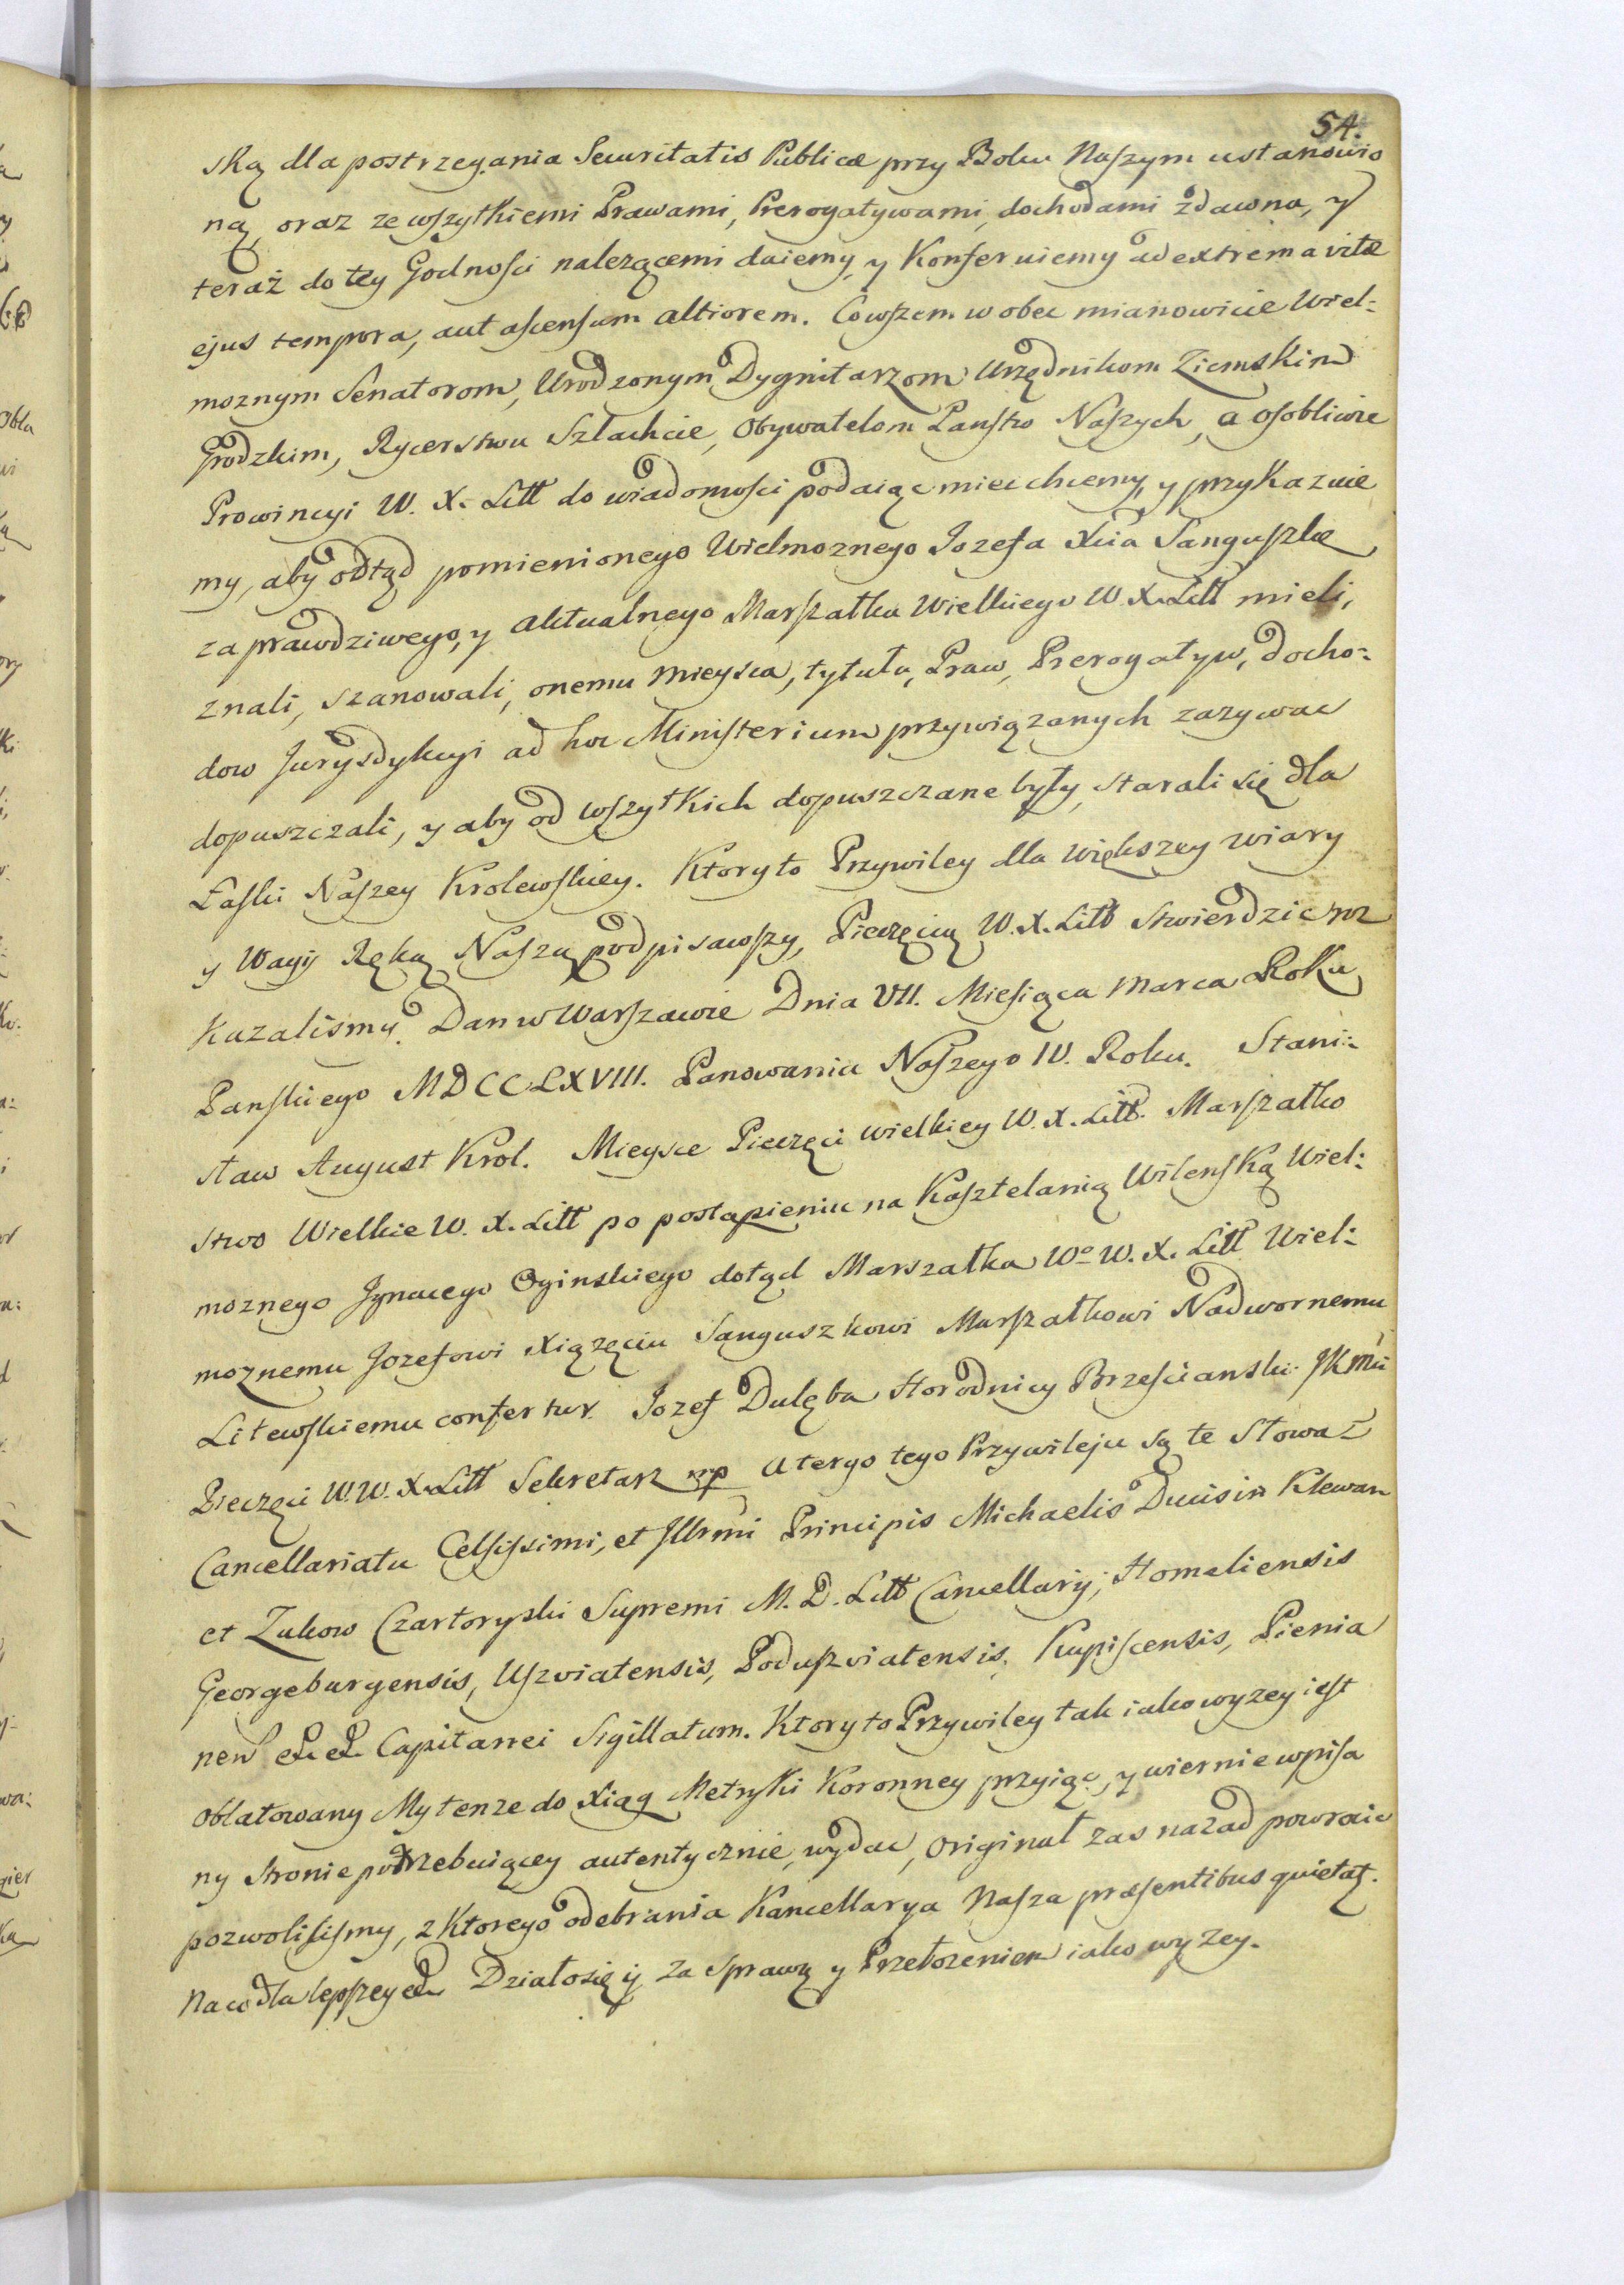 54.
ską dla postrzegania Securitatis Publicæ przy Boku Naszym ustanowio
ną, oraz ze wszytkiemi Prawami, Prerogatywami, dochodami zdawna, y
teraz do tey Godności nalezącemi daiemy, y Konferuiemy ad extrema vitæ
ejus tempora, aut ascensum altiorem. Co wszem w obec mianowicie Wiel:
moznym Senatorom, Urodzonym Dygnitarzom Urzędnikom Ziemskim
Grodzkim, Rycerstwu Szlachcie, Obywatelom Panstw Naszych, a osobliwie
Prowincyi W. X. Litt do wiadomości podaiąc mieć chcemy, y przykazuie
my, aby odtąd pomienionego Wielmoznego Jozefa Xcia Sanguszkę
za prawdziwego, y aktualnego Marszałka Wielkiego W. X. Litt mieli,
znali, szanowali, onemu mieysca, tytułu, Praw, Prerogatyw, docho:
dow Jurysdykcyi ad hoc Ministerium przywiązanych zazywac
dopuszczali, y aby od wszytkich dopuszczane były, starali się dla
Łaski Naszey Krolewskiey. Ktory to Przywiley dla większey wiary
y Wagi Ręką Naszą podpisawszy, Pieczęcią W. X. Litt stwierdzic roz
kazalismy. Dan w Warszawie Dnia VII. Miesiąca Marca Roku
Panskiego MDCCLXVIII. Panowania Naszego IV. Roku. Stani:
sław August Krol. Mieysce Pieczęci wielkiey W. X. Litt. Marszałko
stwo Wielkie W. X. Litt po postąpieniu na Kasztelanią Wilenską Wiel:
moznego Jgnacego Oginskiego dotąd Marszałka Wo W. X. Litt Wiel:
moznemu Jozefowi Xiązęciu Sanguszkowi Marszałkowi Nadwornemu
Litewskiemu confertur. Jozef Dulęba Horodniczy Brzesćianski JKMci
Pieczęci W. W. X. Litt Sekretarz mp A tergo tego Przywileju są te słowa
Cancellariatu Celsissimi, et Jllrmi Principis Michaelis Ducis in Klewan
et Zukow Czartoryski Supremi M. D. Litt Cancellarij, Homeliensis
Georgeburgensis, Uszviatensis, Poduszviatensis, Kupiscensis, Pienia
nen &. &. Capitanei Sigillatum. Ktory to Przywiley tak iako wyzey iest
oblatowany My tenze do Xiąg Metryki Koronney przyiąc, y wiernie wpisa
ny stronie potrzebuiącey autentycznie, wydac, Originał zas nazad powrocic
pozwolilismy, z Ktorego odebrania Kancellarya Nasza præsentibus quietat.
Na co dla lepszey &. Działo się ij za sprawą y Przełozeniem iako wyzey.